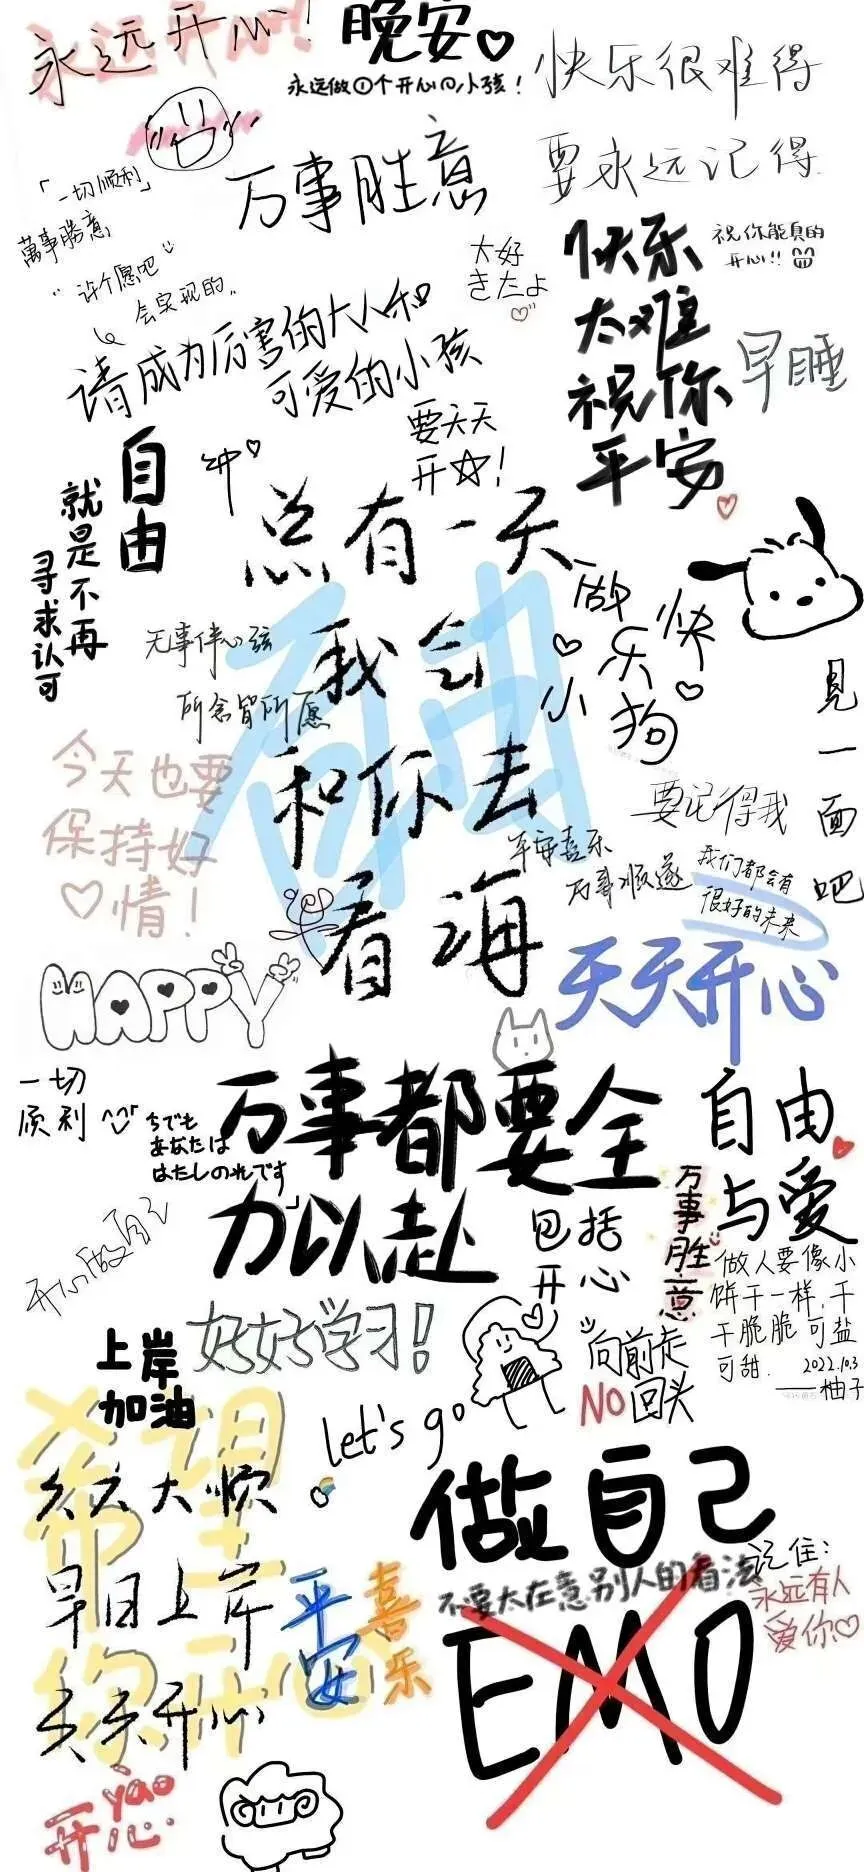 永远开心!
晚安
永远做①个开心の小孩!
快乐很难得
要永远记得
「一切顺利」
萬事勝意
万事胜意
"许个愿吧
会实现的"
大好
きだよ
快乐
太难
祝你
平安
祝你能真的
开心!!
早睡
请成为厉害的大人和
可爱的小孩
要天天
开☆!
自由
就是不再
寻求认可
总有一天
我会
和你去
看海
自由
做快
乐
小狗
无事伴心弦
所念皆所愿
今天也要
保持好
♡情!
见一面吧
要记得我
平安喜乐
万事顺遂
我们都会有
很好的未来
HAPPY
天天开心
一切
顺利
あなたは
万事都要全
力以赴
包括
开心
自由
与爱
万事胜意
做人要像小
饼干一样,干
干脆脆可盐
可甜.
2022.10.3
——柚子
好好学习!
上岸
加油
let's go
向前走
NO回头
希望
你开心
天天大顺
早日上岸
天天开心
平安
喜乐
做自己
不要太在意别人的看法
EMO
记住:
永远有人
爱你♡
yào
开心